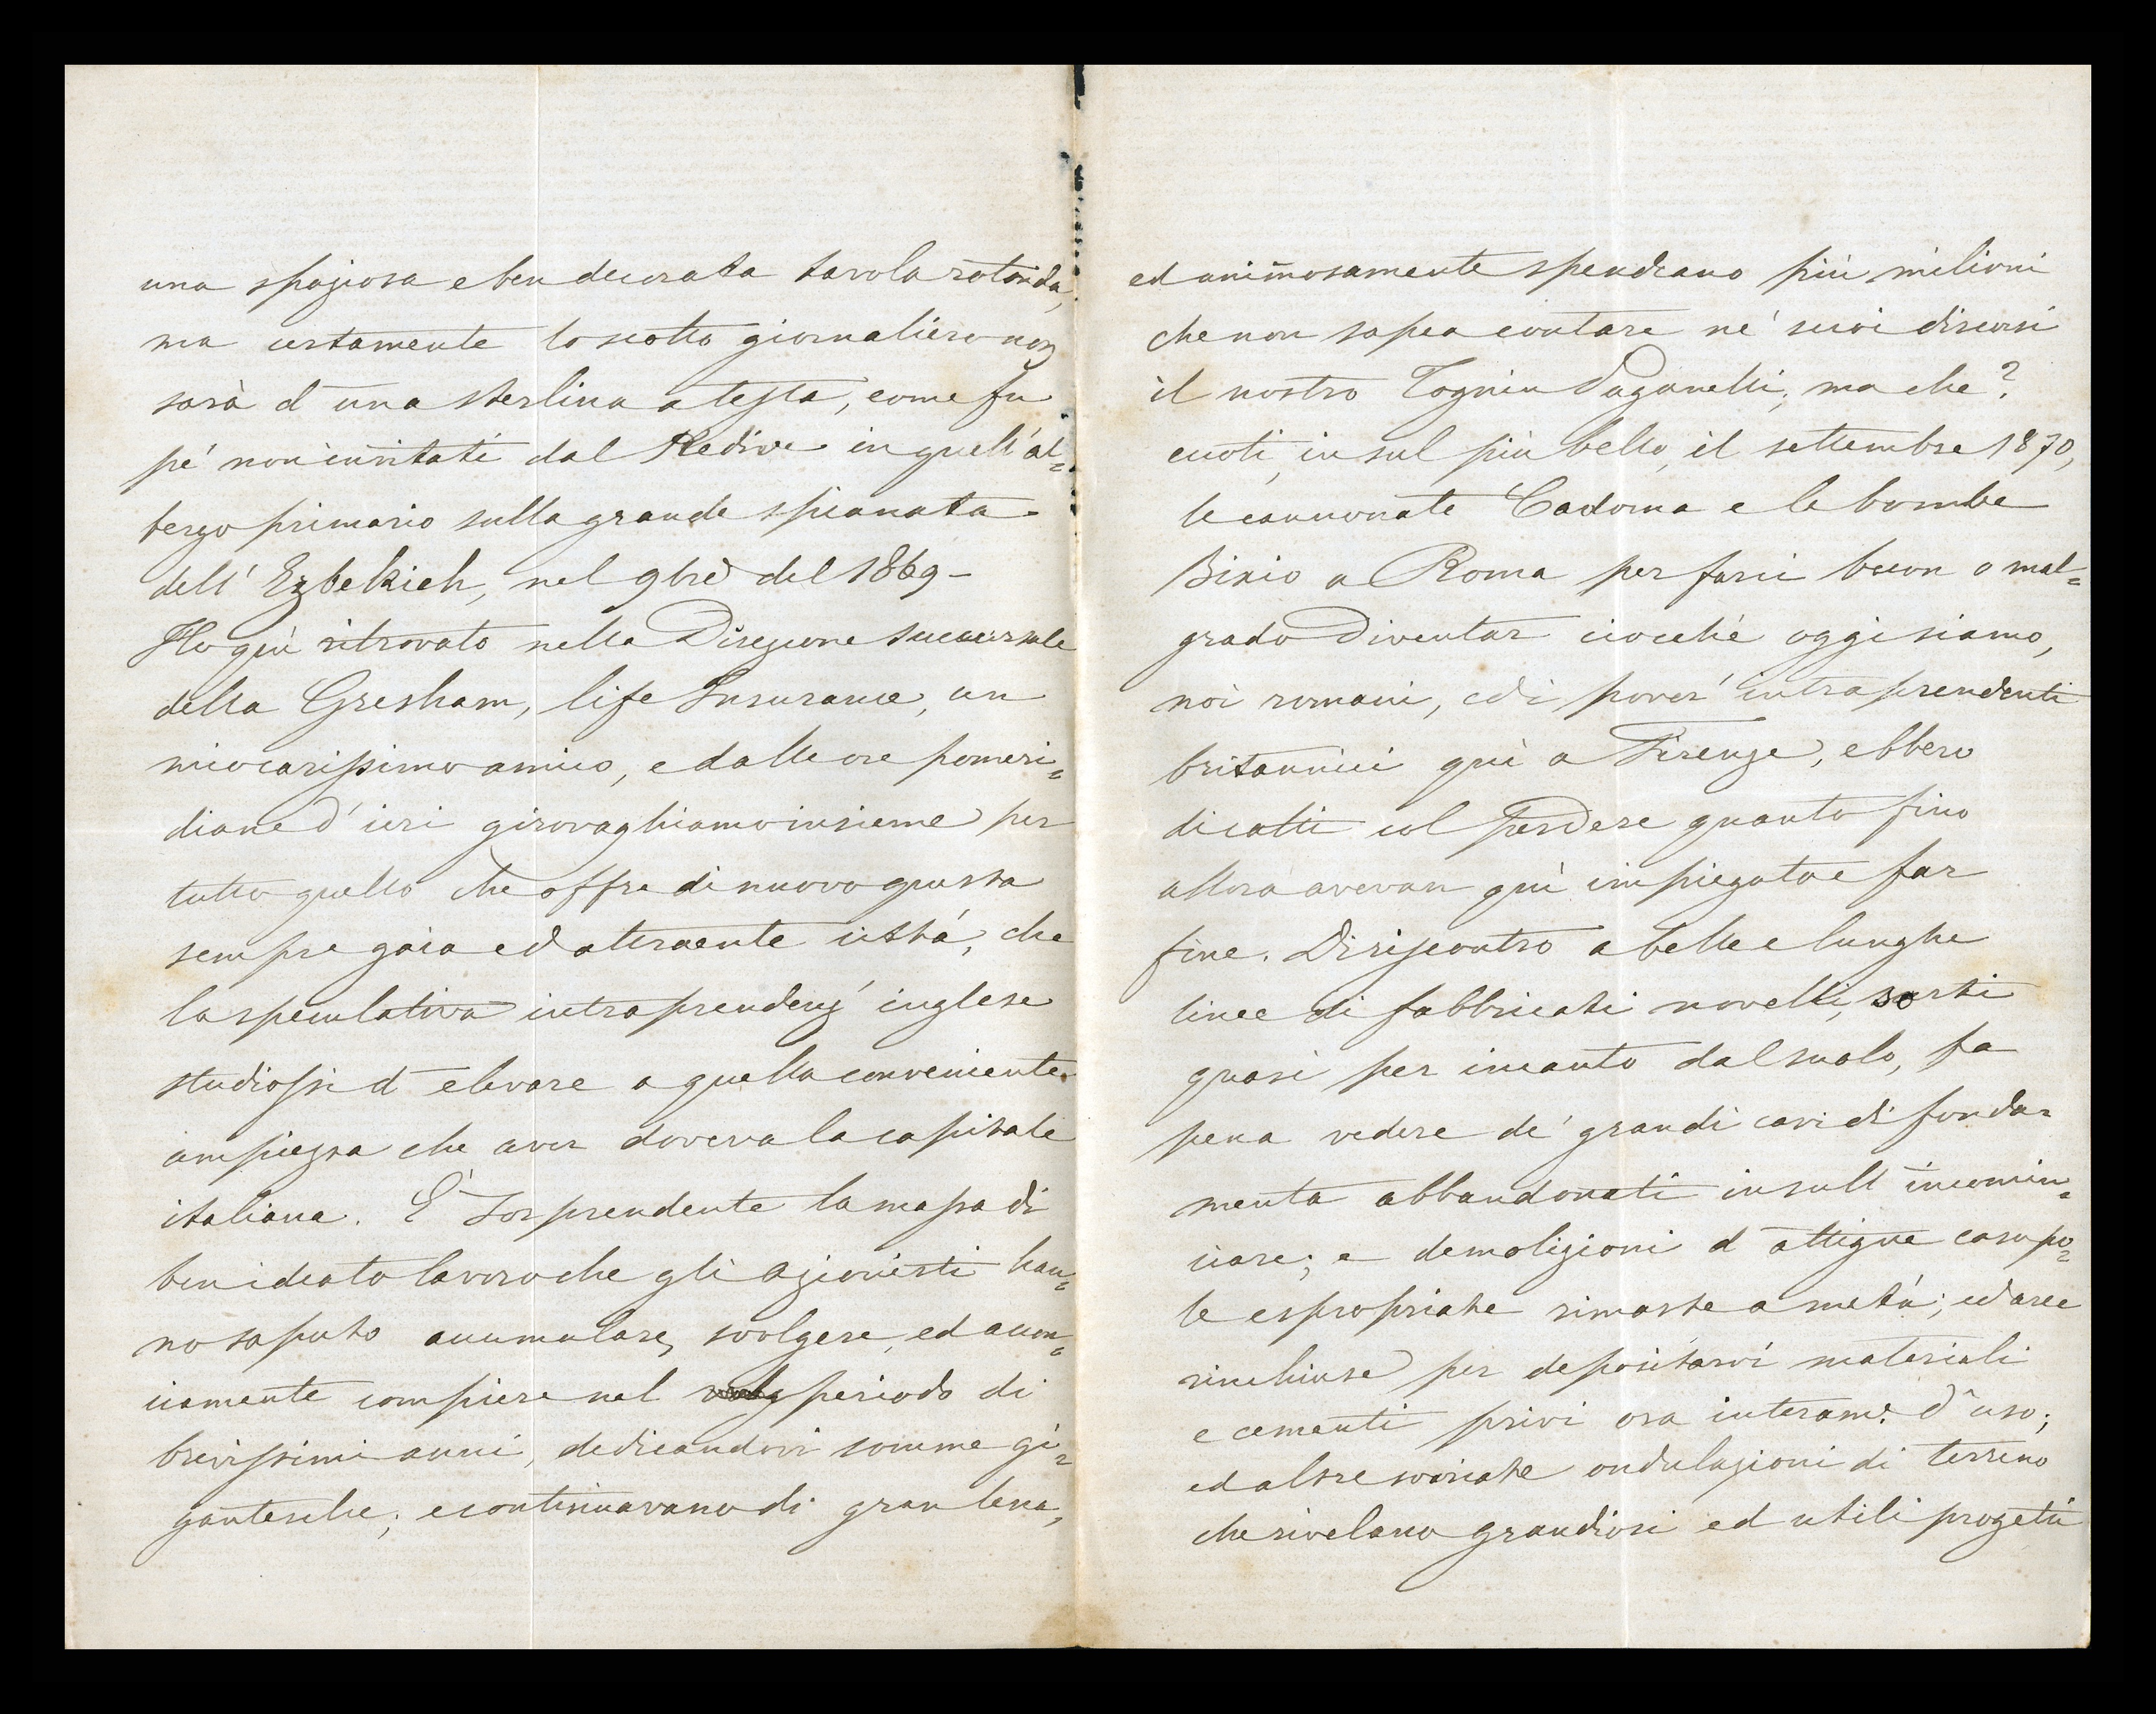 una spaziosa e ben decorata tavola rotonda,
ma certamente lo scotto giornaliero non
sarà d'una sterlina a testa, come fu
pe' non invitati dal Kedive in quell'al=
bergo primario sulla grande spianata
dell'Ezbekieh, nel 9bre del 1869 -
Ho quì ritrovato nella Direzione succursale
della Gresham, life Insurance, un
mio carissimo amico, e dalle ore pomeri=
diane d'ieri girovaghiamo insieme per
tutto quello che offre di nuovo questa
sempre gaia ed attraente città, che
la speculativa intraprendenz' inglese
studiossi d'elevare a quella conveniente
ampiezza che aver doveva la capitale
italiana. È sorprendente la massa di
ben ideato lavoro che gli azionisti han=
no saputo accumulare, svolgere, ed accon=
ciamente compiere nel periodo di
brevissimi anni, dedicandovi somme gi=
gantesche; e continuavano di gran lena,
ed animosamente spendeano più milioni
che non sapea contare ne' suoi discorsi
il nostro Tognin Paganelli; ma che?
, in sul più bello, il settembre 1870,
le cannonate Cadorna e le bombe
Bixio a Roma per farci buon o mal=
grado diventar ciocché oggi siamo,
noi romani, ed i pover' intraprendenti
britannici quì a Firenze, ebbero
di catti col perdere quanto fino
allora avevan quì impiegato e far
fine. Di riscontro a belle e lunghe
linee di fabbricati novelli, sorti
quasi per incanto dal suolo, fa
pena vedere de' grandi cavi di fonda=
menta abbandonati in sull'incomin=
ciare; e demolizioni d'attigue casupo=
le espropriate rimaste a metá; ed aree
rinchiuse per depositarvi materiali
e cementi privi ora interame. d'uso;
ed altre svariate ondulazioni di terreno
che rivelano grandiosi ed utili progetti